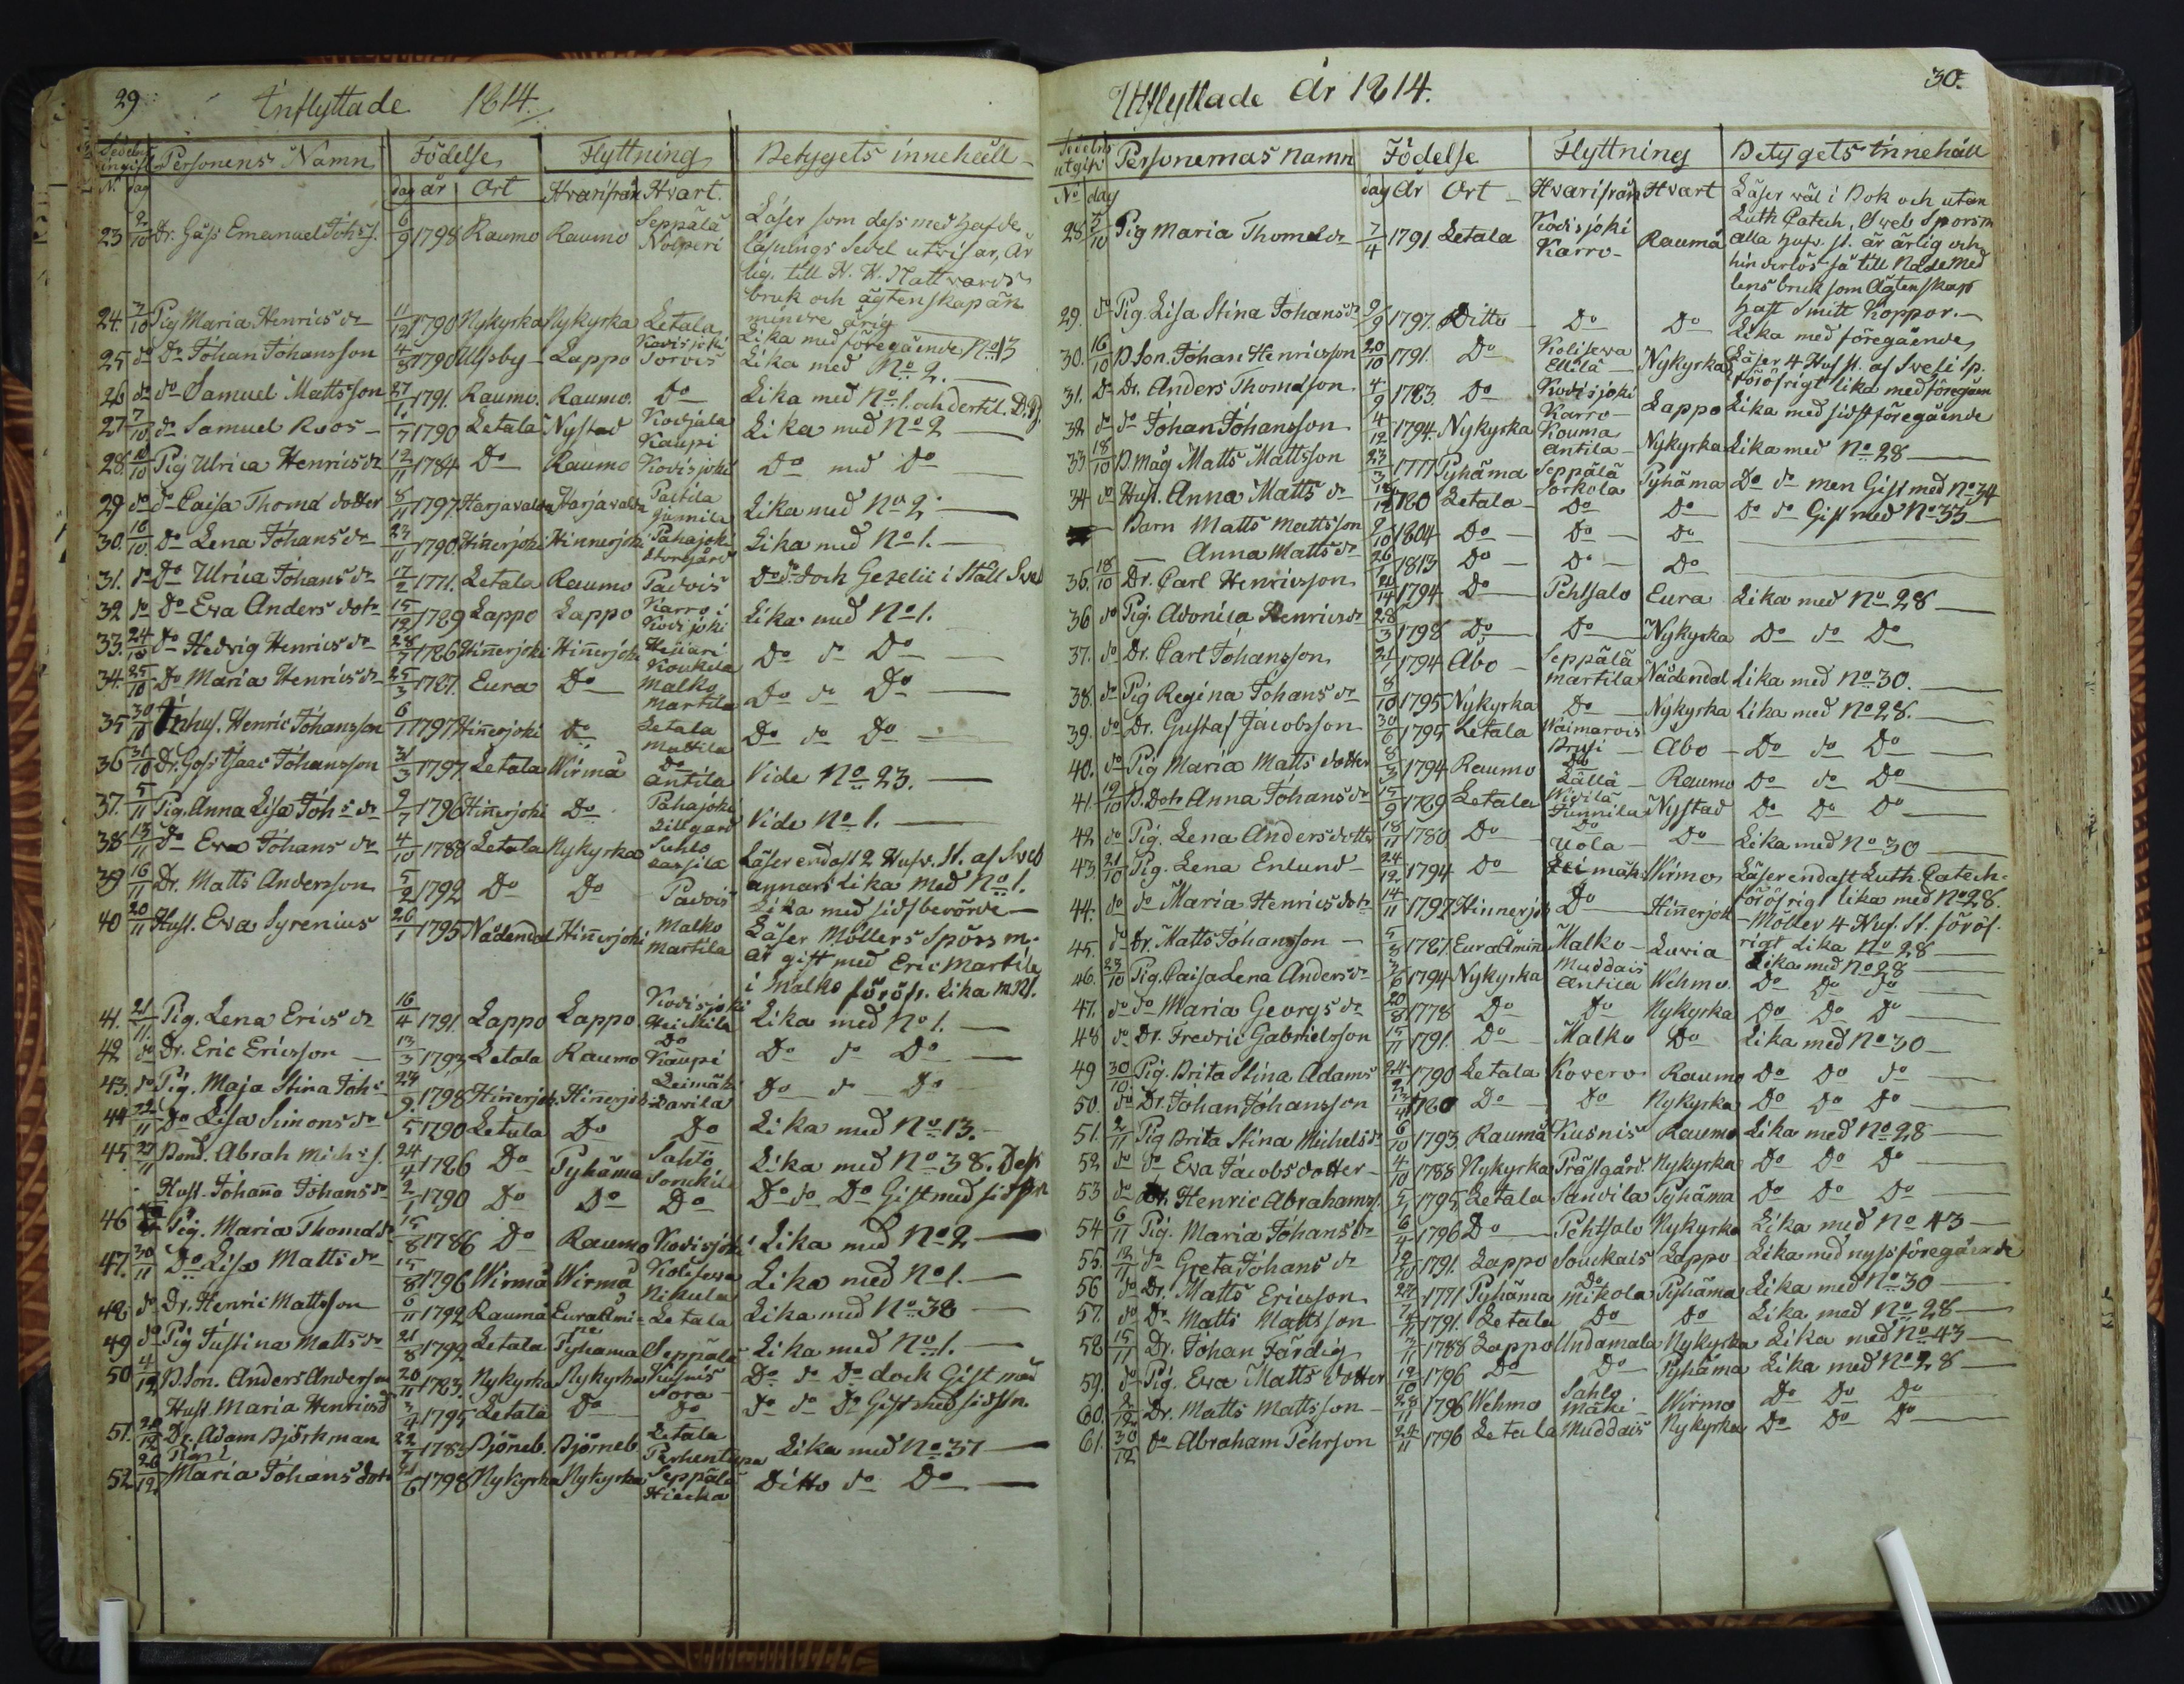 29
Inflyttade 1814.
Sedelns ingift Personens Namn Födelse Flyttning Betygets innehåll
No dag dag år Ort Hvarifrån Hvart.
23 2/10 Dr. Gåss Emanuel Johs S. 6/9 1798 Raumo Raumo Seppälä Nolperi Läser som dess medhafde
läsnings Sedel utvisar, Är
lig, till H. H. Nattvards
bruk och ägtenskap än
mindre årig
24. 7/10 Pig Maria Henrics dr 11/12 1790 Nykyrka Nykyrka Letala Lika med föregående No 13
25 do Do Johan Johansson 4/8 1790 Ulfsby Lappo Kodisjoki Sorvis Lika med No 2.
26 do do Samuel Mattsson 27/1 1791. Raumo. Raumo. Do Lika med No 1. och dertil. D. Bf.
27 7/10 do Samuel Roos 1/7 1790 Letala Nystad Kodjala Kaupi Lika med No 2
28. 10/10 Pig Ulrica Henrics dr 12/11 1784 Do Raumo Kodisjoki Do med Do
29 do do Caisa Thomæ dotter 8/11 1797 Harjavalda Harjavalda Paitila Junnila Lika med No 2
30. 16/10 Do Lena Johans dr 23/11 1790 Hinnerjoki Hinnerjoki Pahajoki Storegård Lika med No 1.
31. do Do Ulrica Johans dr 17/2 1771. Letala Raumo Padvois Do do doch Gezelii i Ställ Sveb
32 do Do Eva Anders dotr 15/12 1789 Lappo Lappo Karro i Kodisjoki Lika med No 1.
33. 24/10 Do Hedvig Henrics dr 28/7 1786 Hinnerjoki Hinnerjoki Heinari Koukila Do do Do
34. 25/10 Do Maria Henrics dr 25/3 1787. Eura Do Malko Martila Do do Do
35 30/10 Inhus. Henric Johansson 6/1 1797 Hinnerjoki Do Letala Mattila Do do Do
36 31/10 Dr. Goss Isaac Johansson 31/3 1797 Letala Wirmå Do Antila Vide No 23.
37. 5/11 Pig. Anna Lisa Johs dr 9/7 1796 Hinnerjoki Do Pahajoki Lillgård Vide No 1.
38 13/11 Do Eva Johans dr 4/10 1788 Letala Nykyrka Suhlo Läser endast 2 Hufv. St. af Sveb
annars Lika med No 1.
39 16/11 Dr. Matts Andersson 5/2 1792 Do Do Padvois Lika med sidstberörde
40 20/11 Hust. Eva Syrenius 26/1 1795 Nådendal Hinnerjoki Malko Martila Läser Möllers Spörsm.
är gift med Eric Martila
i Malko föröfr. Lika m N 1.
41. 21/11. Pig. Lena Erics dr 16/4 1791. Lappo Lappo. Kodisjoki Heickilä Lika med No 1.
42 do Dr. Eric Ericsson 13/3 1793 Letala Raumo Do Kaupi Do do Do
43. do Pig. Maja Stina Johs 24/9. 1798 Hinnerjok. Hinnerjok. Leimäki Do do Do
44 22/11 Do Lisa Simons dr 5 1790 Letala Do Do Lika med No 13.
45. 27/11 Bond. Abrah Michs S. 24/4 1786 Do Pyhäma Sahlo Sorickila Lika med No 38.
Hust. Johaña Johans dr 2/1 1790 Do Do Do Do do Do Gift med sidstn
46 Pig. Maria Thomæ dr 15/8 1786 Do Raumo Kodisjoki Lika med No 2
47. 30/11 Do Lisa Matts dr 15/8 1796 Wirmå Wirmå Kolisewa Nikula Lika med No 1.
48. do Dr. Henric Mattsson 6/11 1792 Raumå Eura Åmi Letala Lika med No 38
49 do Pig Justina Matts dr 21/8 1792 Letala Pyhama Seppälä Lika med No 1.
50 4/12 B. Son. Anders Andersson 20/11 1783 Nykyrka Nykyrka Kusnis Sora Do do Do doch Gift med
Hust. Maria Henricsd 3/4 1795 Letala Do Do do do Do Gift med sidstn.
51. 20/12 Dr. Adam Björkman 22/7 1783 Björneb. Björneb. Letala Perhentupa Lika med No 37
52. 26/12. Maria Johans dotr 6 1798 Nykyrka Nykyrka Seppälä Hiecka Ditto do Do
30.
Utflyttade År 1814.
Sedelns utgift Personernas Namn Födelse Flyttning Betygets Innehåll
No dag dag År Ort Hvarifrån Hvart
28 2/10 Pig Maria Thomæ dr 7/4 1791. Letala Kodisjoki Karro Raumå Läser wäl i Bok och utan
Luth Catech, Sveb Spörsm
alla hufv. st. är ärlig och
hinderlös så till Nådemed
lens bruk som Ägtenskap
haft Smitt Koppor.
29. do Pig. Lisa Stina Johans dr 9/9 1797. Ditto Do Do Lika med föregående
30. 16/10 B. Son. Johan Henricsson 20/10 1791. Do Kolisewa Ellilä Nykyrka Läser 4 Huf St. af Svebi Sp.
föröfrigt lika med föregåen
31. do Dr. Anders Thomæsson 4/9 1783. Do Kodisjoki Karro Lappo Lika med sidstföregående
32 do do Johan Johansson 4/12 1794. Nykyrka Kouma Antila Nykyrka Lika med No 28
33 18/10 B. Måg Matts Mattsson 23/3 1777 Pyhäma Seppälä Sorkola Pyhäma Do do men Gift med No 34
34 do Hust. Anna Matts dr 1780 Letala Do Do Do do Gift med No 33
Barn Matts Mattsson 9/10 1804 Do Do Do
Anna Matts dr 26/1 1813 Do Do Do
36. 18/10 Dr. Carl Henricsson 1794 Do Pehtsalo Eura Lika med No 28
36 do Pig. Adonica Henrics dr 28/3 1798 Do Do Nykyrka Do do Do
37. do Dr. Carl Johansson 21/1 1794 Åbo Seppälä Martila Nådendal Lika med No 30.
38. do Pig Regina Johans dr 8/10 1795 Nykyrka Do Nykyrka Lika med No 28.
39. do Dr. Gustaf Jacobsson 30/6 1795 Letala Waimarois Brusi Åbo Do do Do
40. do Pig Maria Matts dotter 8/3 1794 Raumo Do Lällä Raumo Do do Do
41. 19/10 B. Dotr Anna Johans dr 15/9 1789 Letala Widila Junnila Nystad Do Do Do
42 do Pig. Lena Anders dotter 18/11 1780 Do Do Uola Do Lika med No 30
43. 21/10 Pig. Lena Enlund 24/12 1794 Do Leimäki Wirmo Läser endast Luth. Catech.
föröfrigt lika med No 28.
44. do do Maria Henrics dotr 14/11 1797 Hinnerjok Do Hinnerjok Möller 4 Huf. St. föröf-
rigt Lika No 28
45. do Dr. Matts Johansson 5/8 1787. Eura Åmin Malko Luvia Lika med No 28
46. 23/10 Pig. Caisa Lena Anders dr 3/6 1794 Nykyrka Muddais Antila Wehmo. Do Do do
47. do do Maria Georgs dr 20/8 1778 Do Do Nykyrka Do Do Do
48 do Dr. Fredric Gabrielsson 15/11 1791. Do Malko Do Lika med No 30
49 30/10. Pig. Brita Stina Adams 24/2 1790 Letala Kovero Raumo Do Do do
50. do Dr. Johan Johansson 13/4 1780 Do Do Nykyrka Do Do Do
51. 2/11 Pig Brita Stina Michels dr 6/10 1793 Raumå Kusnis Raumo Lika med No 28
52 do do Eva Jacobs dotter 4/10 1788 Nykyrka Prästgård. Nykyrka Do Do Do
53 do Dr. Henric Abrahamss. 1795 Letala Sandila Pyhäma Do Do Do
54 6/11 Pig. Maria Johans dr 6/4 1796 Do Pehtsalo Nykyrka Lika med No 43
55. 13/11 do Greta Johans dr 12/10 1791. Lappo Souckais Lappo Lika med nyss föregående
56 do Dr. Matts Ericsson 24 1771 Pyhäma Do Mikola Pyhäma Lika med No 30
57. do Do Matts Mattsson 1791. Letala Do Do Lika med No 28
58. 15/11 Dr. Johan Färdig 3/11 1788 Lappo Undamala Nykyrka Lika med No 43
59. do Pig. Eva Matts dotter 12/10 1796 Do Do Pyhäma Lika med No 28
60. 2/12 Dr. Matts Mattsson 28/11 1786 Wehmo Sahlo Mäki Wirmo Do Do Do
61. 30/12 Do Abraham Pehrsson 24/11 1796 Letala Muddais Nykyrka Do Do Do